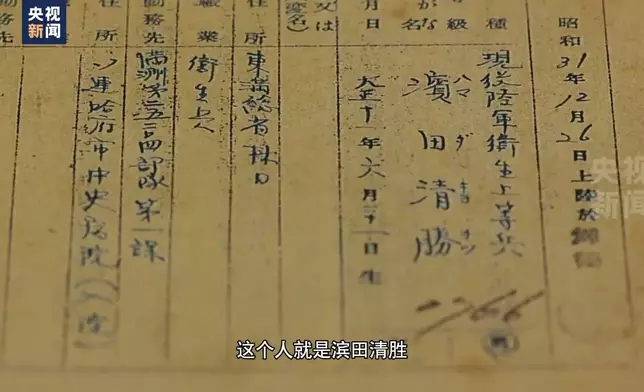 央视新闻
昭和31年12月26日上陸於
現役陸軍衛生上等兵
種
級
ハマダ
濱田清勝
が な 名
大正十一年六月
日生
月日
又は
変名
住所
東満総省林口
職業
衛生上人
勤務先
満洲第二五二四部隊第一課
住所
中央病院(入院)
勤務先
2766
央视新闻
这个人就是滨田清胜